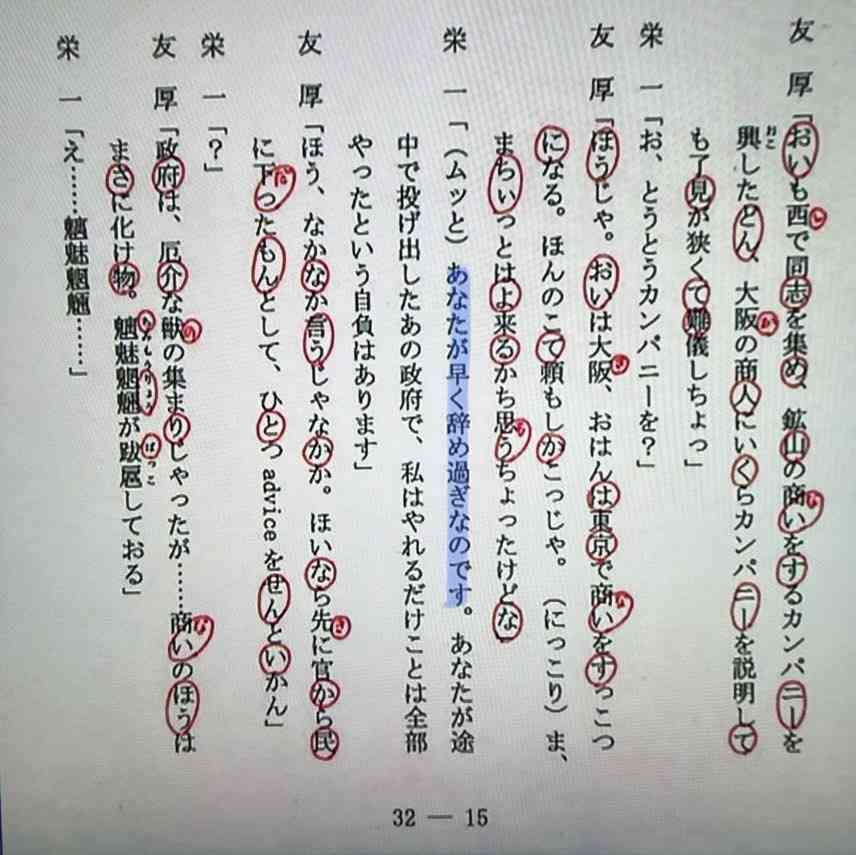 友厚「おいも西で同志を集め、鉱山の商いをするカンパニーを
興したどん、大阪の商人にいくらカンパニーを説明して
も了見が狭くて難儀しちょっ」
栄一「お、とうとうカンパニーを？」
友厚「ほうじゃ。おいは大阪、おはんは東京で商いをすっこつ
になる。ほんのこて頼もしかこっじゃ。（にっこり）ま、
まちぃっとはよ来るかち思うちょったけどな」
栄一「（ムッと）あなたが早く辞め過ぎなのです。あなたが途
中で投げ出したあの政府で、私はやれるだけことは全部
やったという自負はあります」
友厚「ほう、なかなか言うじゃなかか。ほいなら先に官から民
に下ったもんとして、ひとつadviceをせんといかん」
栄一「？」
友厚「政府は、厄介な獣の集まりじゃったが……商いのほうは
まさに化け物。魑魅魍魎が跋扈しておる」
栄一「え……魑魅魍魎……」
32 ― 15